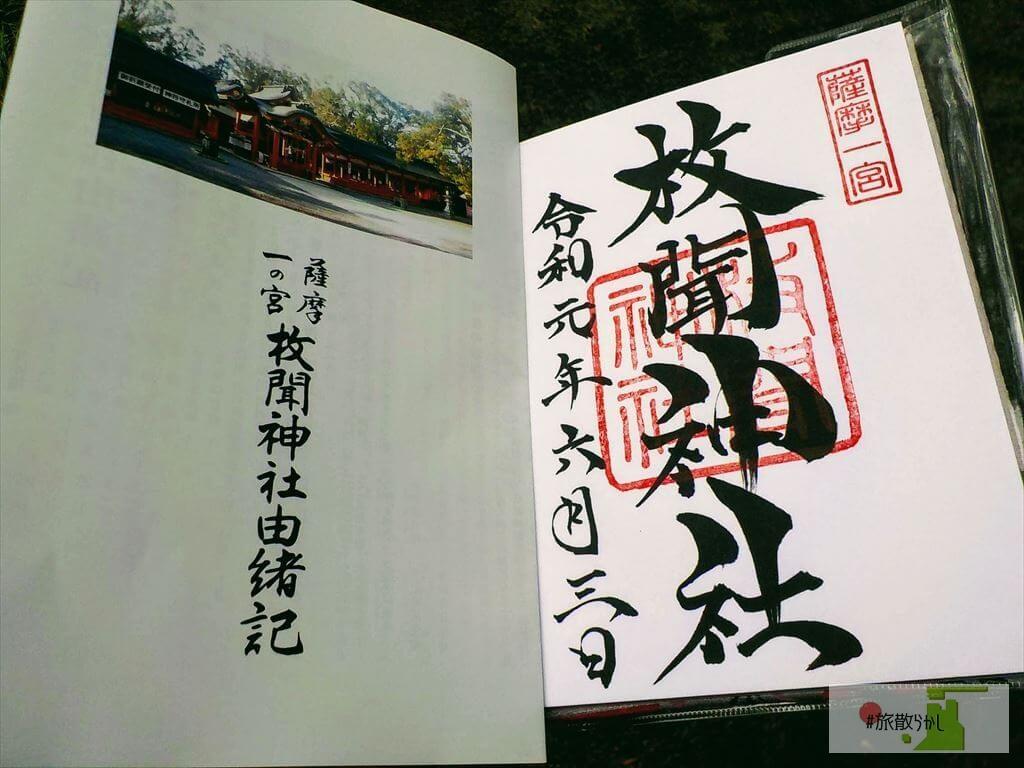 薩摩
一の宮
枚聞神社由緒記
薩摩一宮
枚聞神社
令和元年六月三日
#旅散らかし